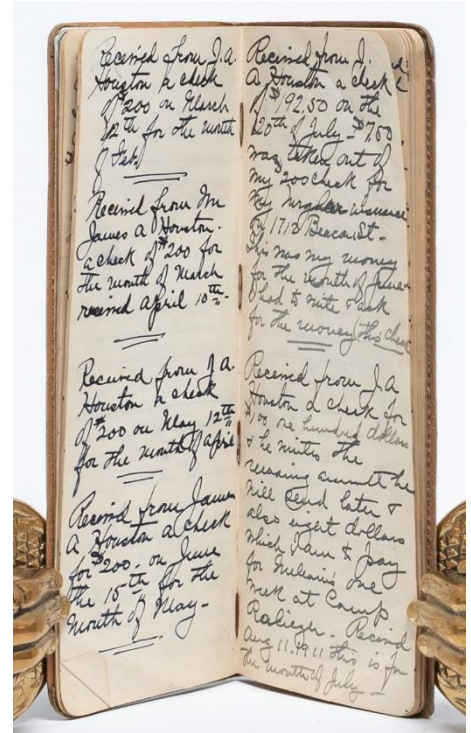 Received from J. A.
Houston a check
of 200 on March
12th for the month
of Feb.
Received from Mr
James A Houston.
a check of $200 for
the month of March
received April 10th-
Received from J. A.
Houston a check
of $200 on May 12th
for the month of April
Received from James
A Houston a check
for $200- on June
the 15th for the
month of May-
Received from J.
A Houston a check
of $192.50 on the
20th of July- $7.50
was taken out of
my $200 check for
my insurance
on 1712 Beacon St-
This was my money
for the month of June-
I had to write & ask
for the money this check
Received from J. A
Houston a check for
$100 one hundred dollars
& he writes the
remaining amount he
will send later &
also eight dollars
which I am to pay
for one
week at Camp
Received
Aug 11-1911 this is for
the month of July-